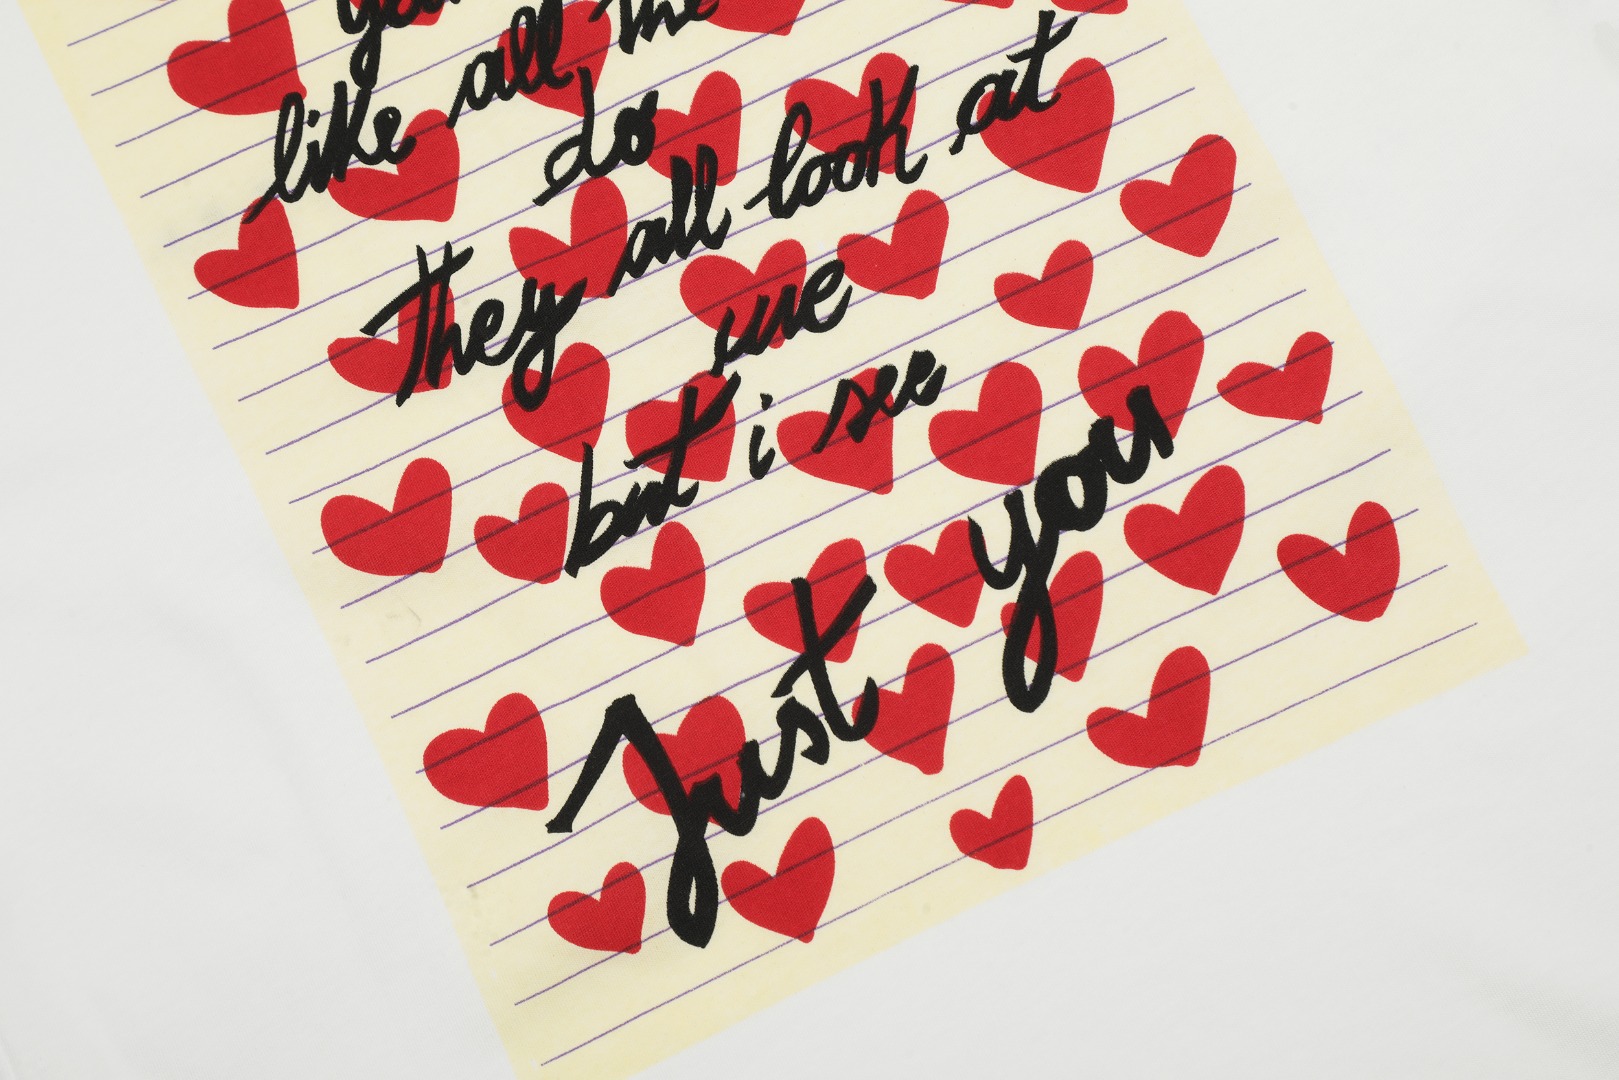 like all the
do
they all look at
me
but i see
Just you